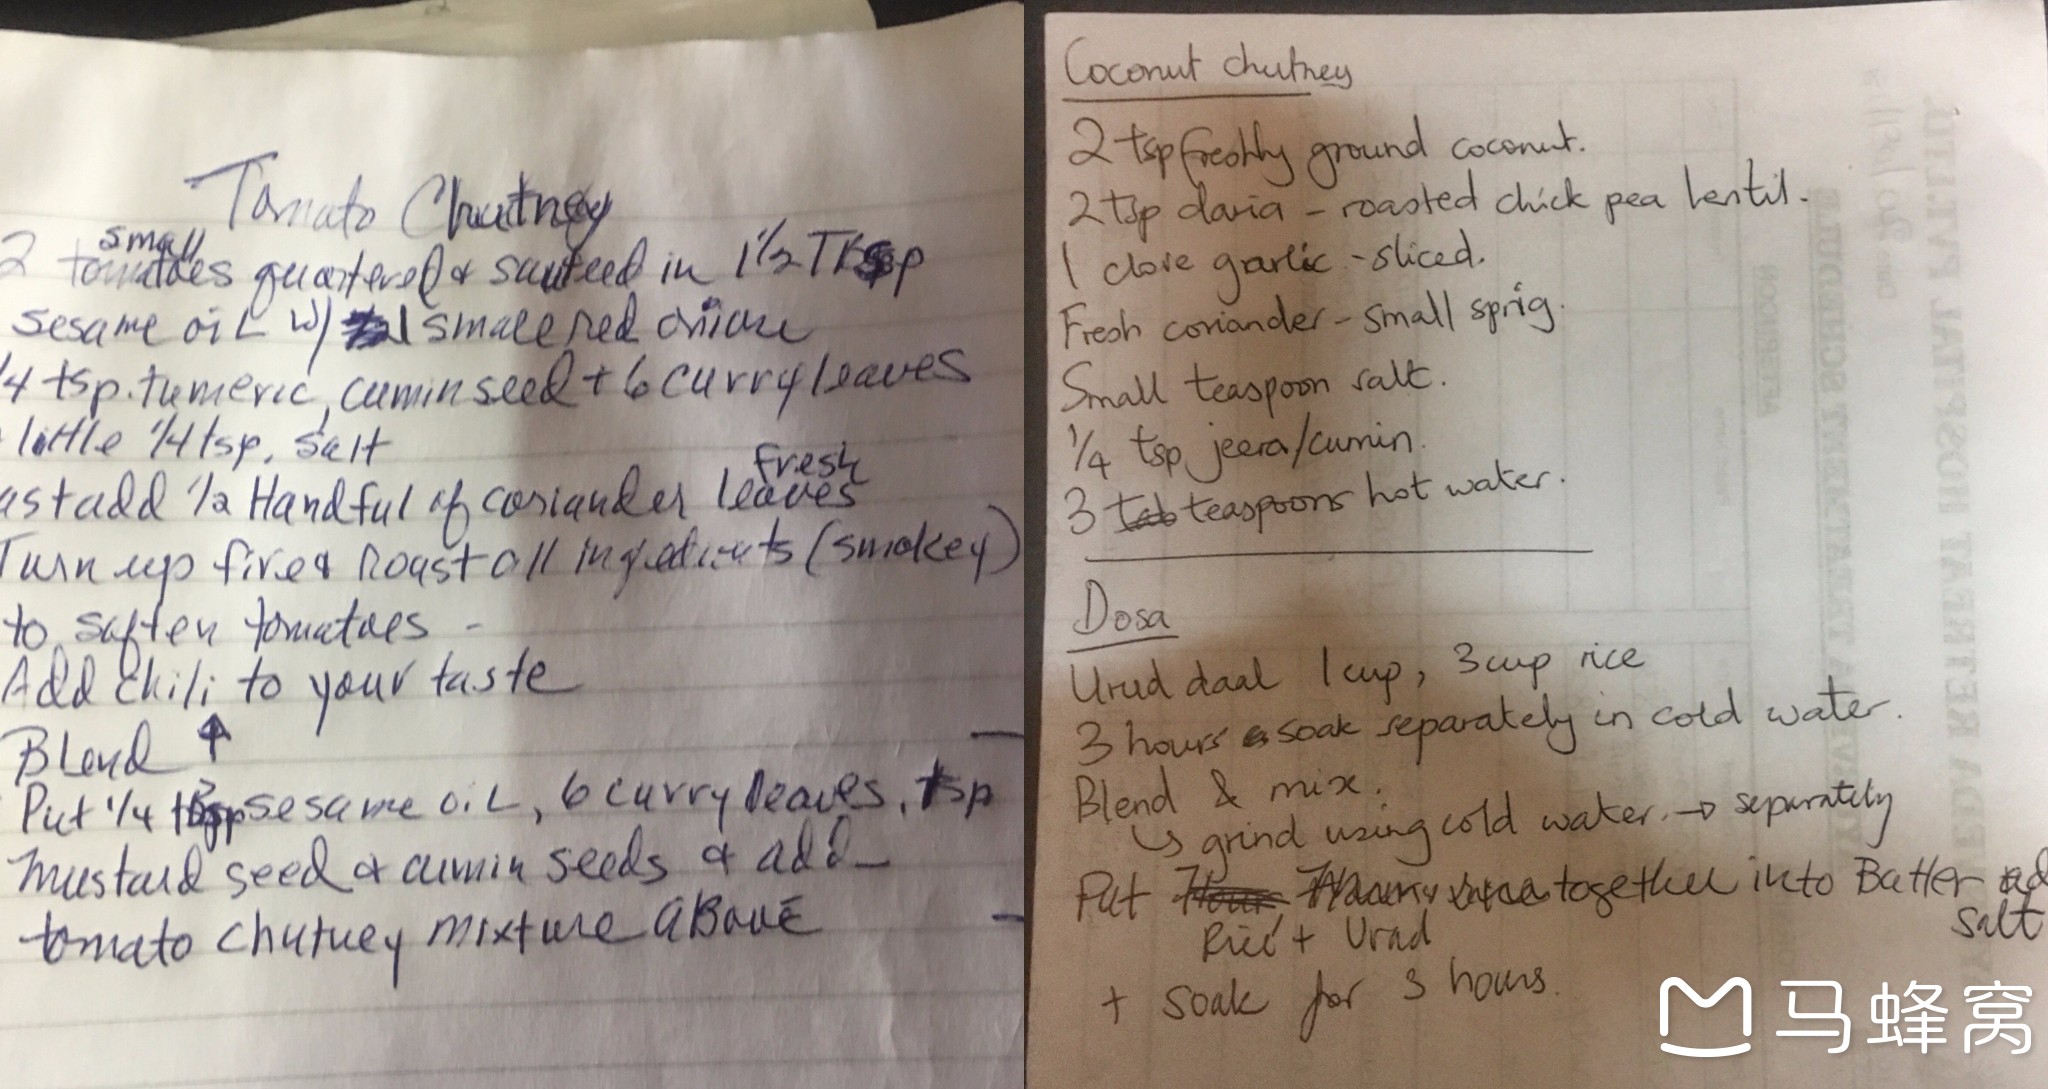 Tomato Chutney
small
2 tomatoes quartered & sauteed in 1 1/2 TBsp
sesame oil w/ 1 small red onion
1/4 tsp. tumeric, cumin seed + 6 curry leaves
little 1/4 tsp. salt
fresh
ast add 1/2 Handful of coriander leaves
Turn up fire & Roast all ingredients (smokey)
to soften tomatoes -
Add chili to your taste
Blend ↑
Put 1/4 tsp sesame oil, 6 curry leaves, tsp
mustard seed & cumin seeds & add
tomato chutney mixture above
Coconut chutney
2 tsp freshly ground coconut.
2 tsp daria - roasted chick pea lentil.
1 clove garlic - sliced.
Fresh coriander - small sprig.
Small teaspoon salt.
1/4 tsp jeera/cumin.
3 teaspoons hot water.
Dosa
Urud daal 1 cup, 3 cup rice
3 hours soak separately in cold water.
Blend & mix.
↳ grind using cold water. → separately
Put together into Batter ad
salt
Rice + Urad
+ soak for 3 hours.
马蜂窝